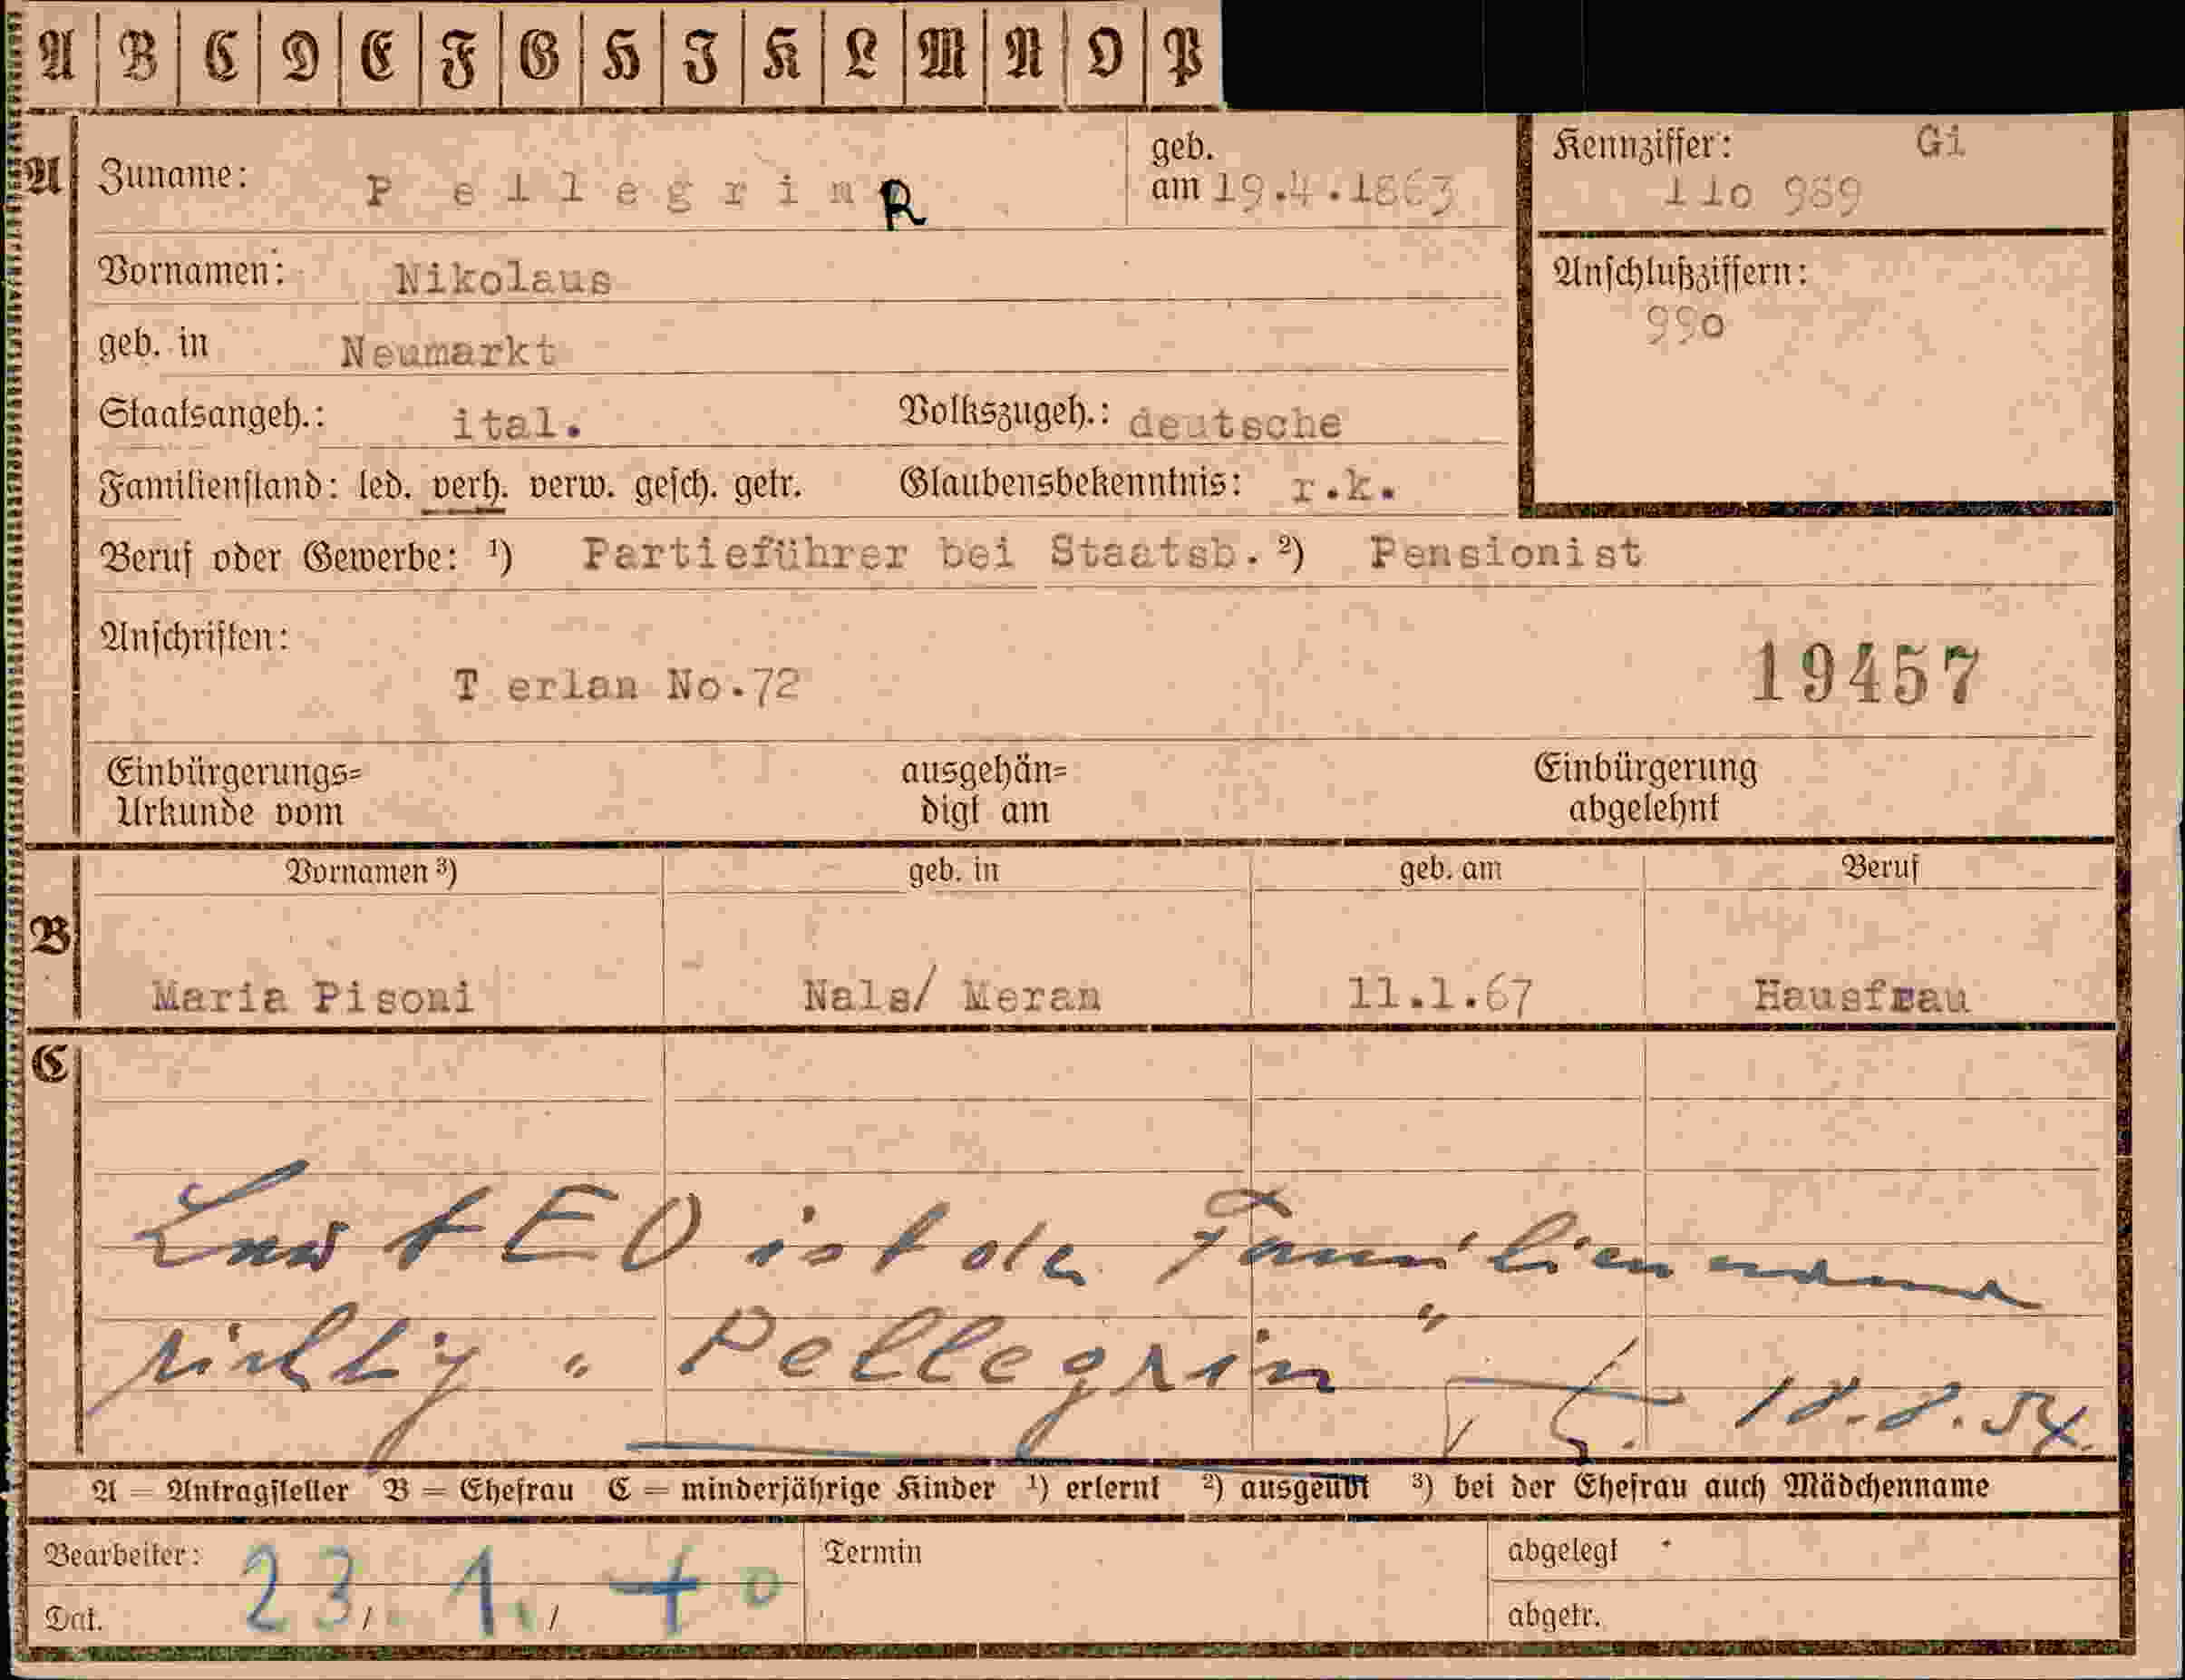 A B C D E F G H I K L M N O P
A
Zuname: Pellegrin R
geb. am 19.4.1863
Kennziffer: Gi
110 989
Vornamen: Nikolaus
Anschlußziffern:
990
geb. in Neumarkt
Staatsangeh.: ital. Volkszugeh.: deutsche
Familienstand: led. verh. verw. gesch. getr. Glaubensbekenntnis: r.k.
Beruf oder Gewerbe: ¹) Partieführer bei Staatsb. ²) Pensionist
Anschriften:
T erlan No.72
19457
Einbürgerungs= Urkunde vom
ausgehän= digt am
Einbürgerung abgelehnt
B
Vornamen ³) geb. in geb. am Beruf
Maria Pisoni Nals/ Meran 11.1.67 Hausfrau
C
Laut EO ist der Familienname
richtig " Pellegrin "
18.8.54.
A = Antragsteller B = Ehefrau C = minderjährige Kinder ¹) erlernt ²) ausgeübt ³) bei der Ehefrau auch Mädchenname
Bearbeiter:
Dat. 23/ 1. / 40
Termin
abgelegt
abgetr.